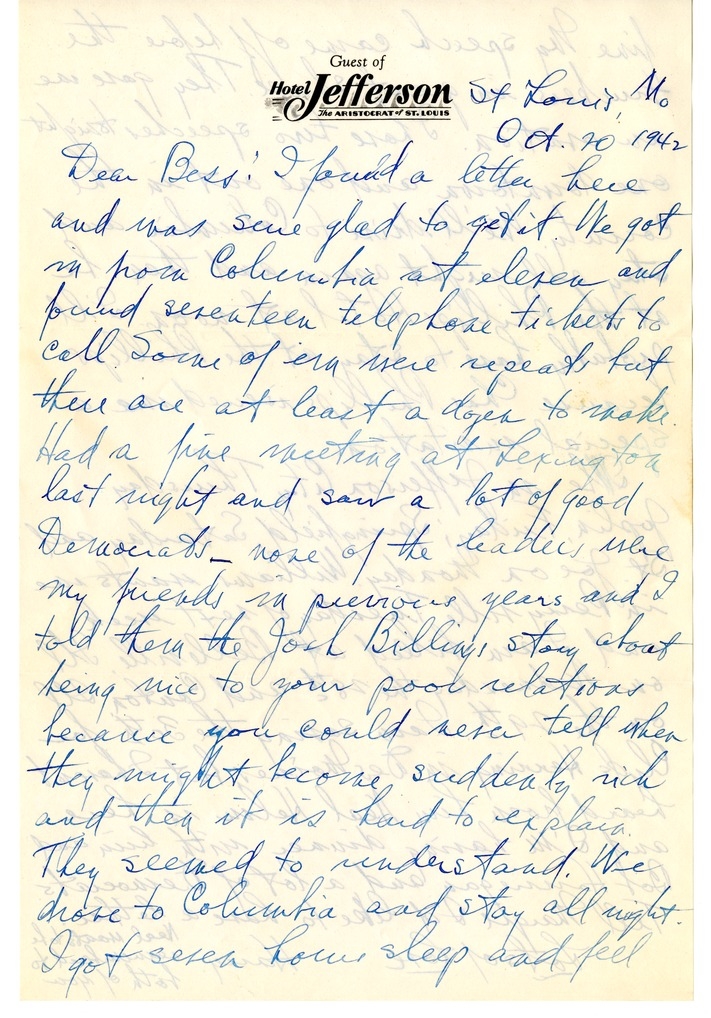 Guest of
Hotel Jefferson
The ARISTOCRAT of ST. LOUIS
St Louis, Mo
Oct. 20 1942
Dear Bess: I found a letter here
and was sure glad to get it. We got
in from Columbia at eleven and
found seventeen telephone tickets to
call. Some of em were repeats but
there are at least a dozen to make.
Had a fine meeting at Lexington
last night and saw a lot of good
Democrats - none of the leaders were
my friends in previous years and I
told them the Josh Billings story about
being nice to your poor relations
because you could never tell when
they might become suddenly rich
and then it is hard to explain.
They seemed to understand. We
drove to Columbia and stay all night.
I got seven hours sleep and feel